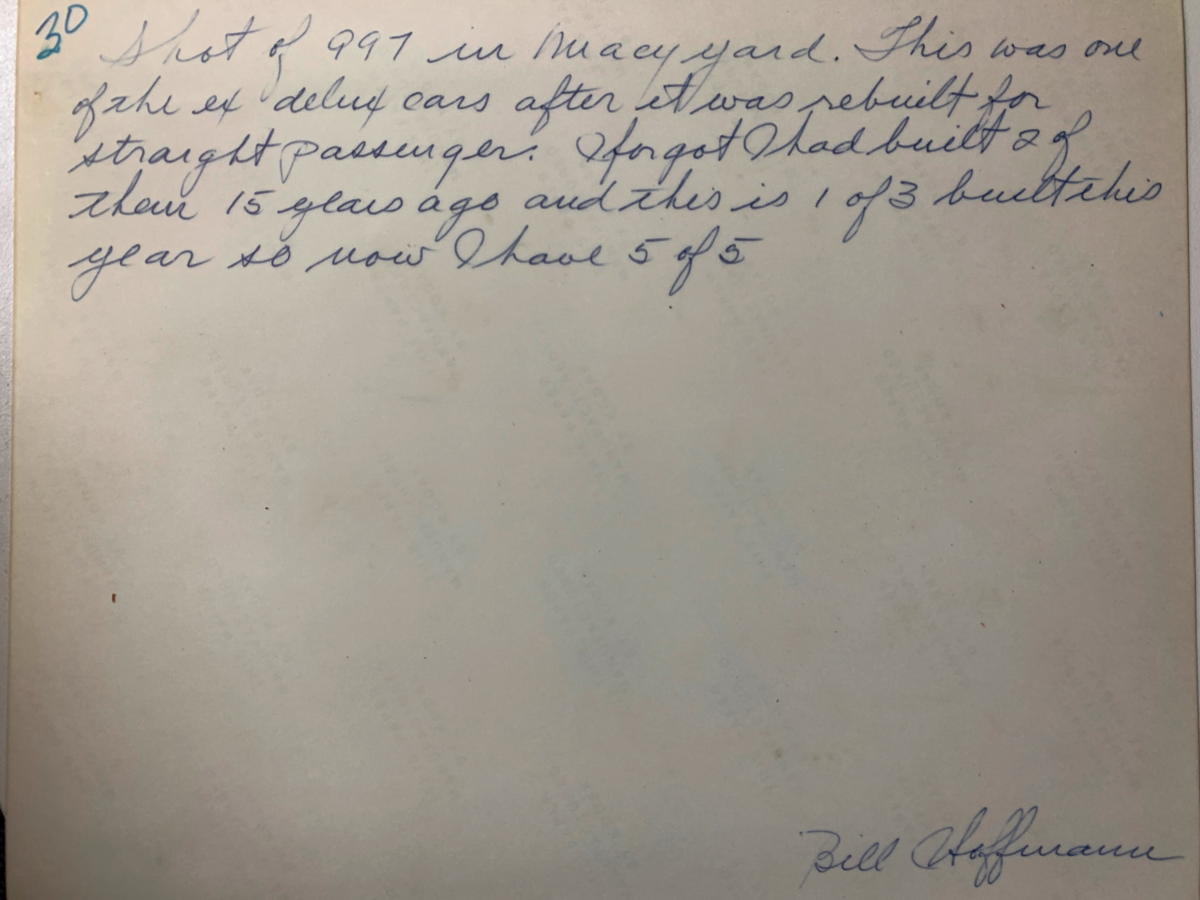 30
Shot of 997 in Macy yard. This was one
of the ex delux cars after it was rebuilt for
straight passenger. I forgot I had built 2 of
them 15 years ago and this is 1 of 3 built this
year so now I have 5 of 5
Bill Hoffmann